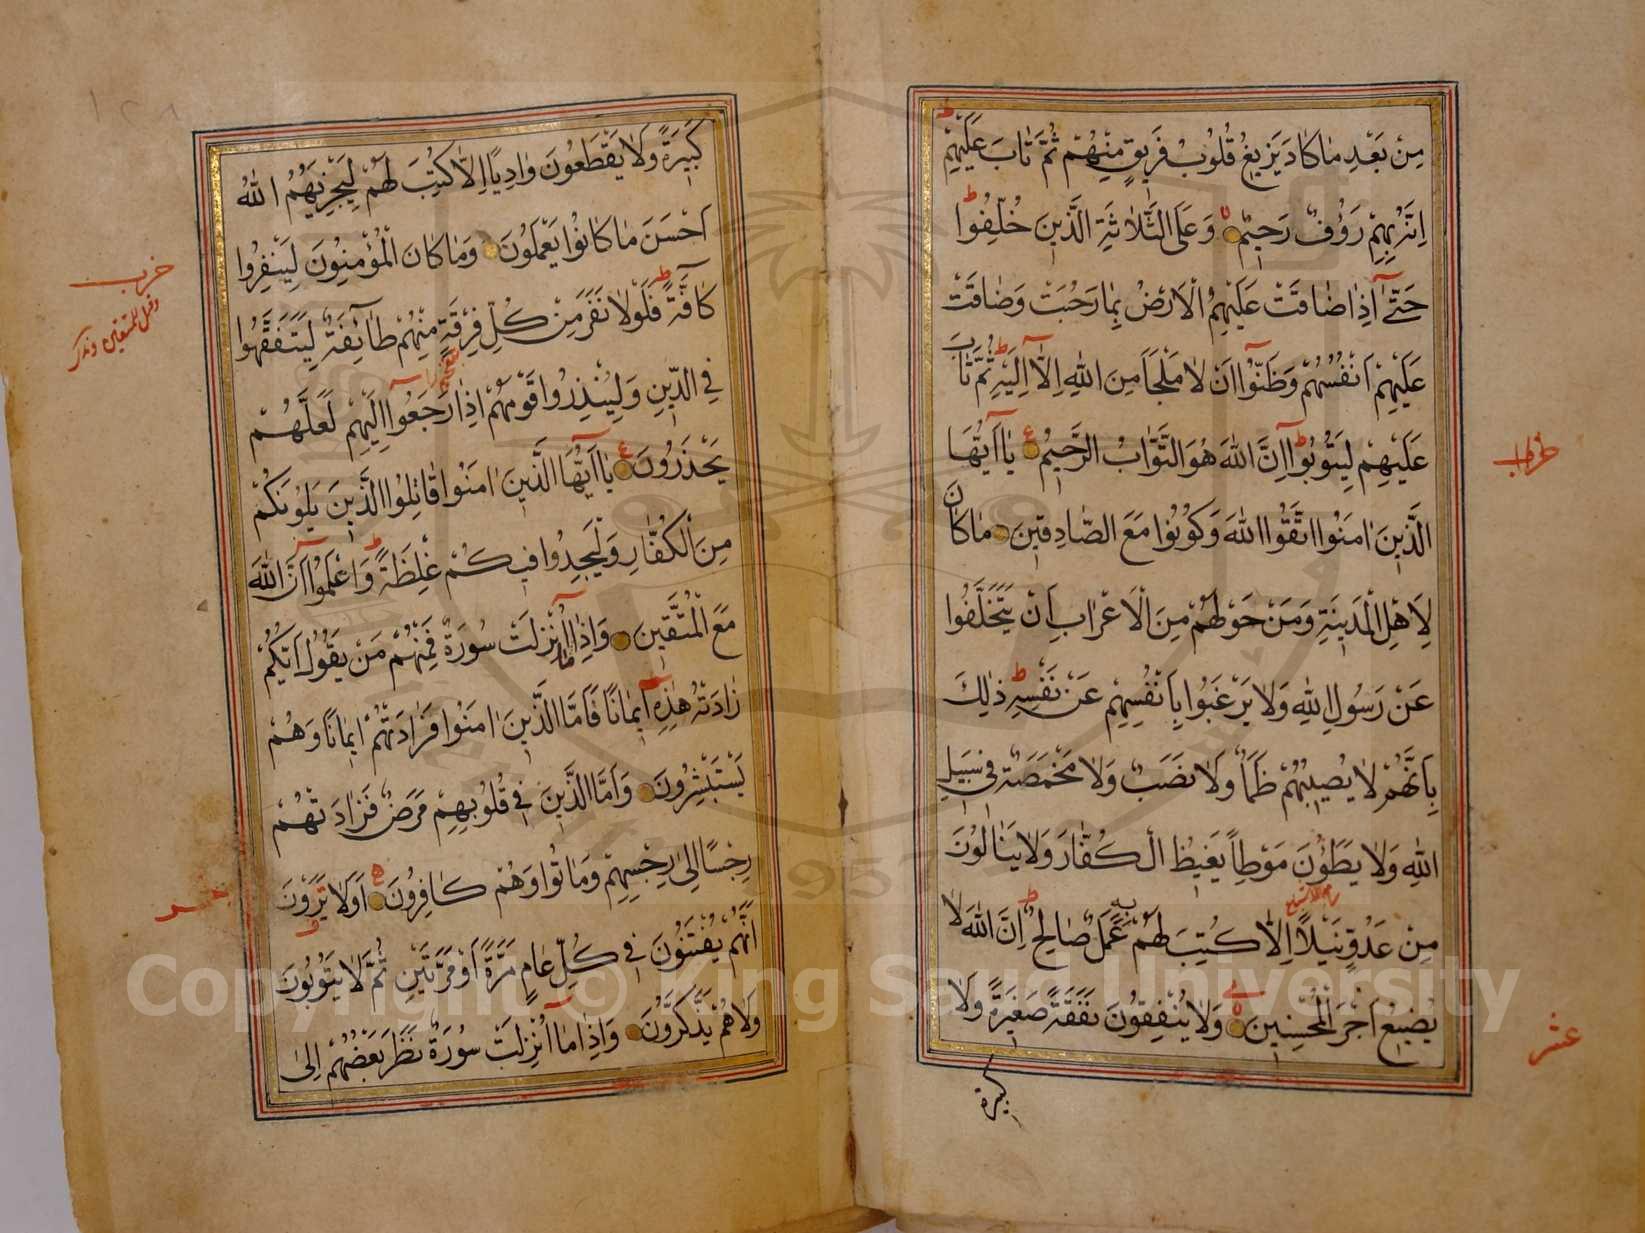 مِنْ بَعْدِ مَا كَادَ يَزِيغُ قُلُوبُ فَرِيقٍ مِنْهُمْ ثُمَّ تَابَ عَلَيْهِمْ
اِنَّهُ بِهِمْ رَؤُفٌ رَحِيمٌ وَعَلَى الثَّلَاثَةِ الَّذِينَ خُلِّفُوا
حَتّٰى اِذَا ضَاقَتْ عَلَيْهِمُ الْاَرْضُ بِمَا رَحُبَتْ وَضَاقَتْ
عَلَيْهِمْ اَنْفُسُهُمْ وَظَنُّوا اَنْ لَا مَلْجَاَ مِنَ اللّٰهِ اِلَّا اِلَيْهِ ثُمَّ تَابَ
عَلَيْهِمْ لِيَتُوبُوا اِنَّ اللّٰهَ هُوَ التَّوَّابُ الرَّحِيمُ يَا اَيُّهَا
الَّذِينَ اٰمَنُوا اتَّقُوا اللّٰهَ وَكُونُوا مَعَ الصَّادِقِينَ مَا كَانَ
لِاَهْلِ الْمَدِينَةِ وَمَنْ حَوْلَهُمْ مِنَ الْاَعْرَابِ اَنْ يَتَخَلَّفُوا
عَنْ رَسُولِ اللّٰهِ وَلَا يَرْغَبُوا بِاَنْفُسِهِمْ عَنْ نَفْسِهِ ذٰلِكَ
بِاَنَّهُمْ لَا يُصِيبُهُمْ ظَمَاٌ وَلَا نَصَبٌ وَلَا مَخْمَصَةٌ فِي سَبِيلِ
اللّٰهِ وَلَا يَطَؤُنَ مَوْطِئًا يَغِيظُ الْكُفَّارَ وَلَا يَنَالُونَ
مِنْ عَدُوٍّ نَيْلًا اِلَّا كُتِبَ لَهُمْ بِهِ عَمَلٌ صَالِحٌ اِنَّ اللّٰهَ لَا
يُضِيعُ اَجْرَ الْمُحْسِنِينَ وَلَا يُنْفِقُونَ نَفَقَةً صَغِيرَةً وَلَا
كبيرة
عشر
كَبِيرَةً وَلَا يَقْطَعُونَ وَادِيًا اِلَّا كُتِبَ لَهُمْ لِيَجْزِيَهُمُ اللّٰهُ
اَحْسَنَ مَا كَانُوا يَعْمَلُونَ وَمَا كَانَ الْمُؤْمِنُونَ لِيَنْفِرُوا
كَافَّةً فَلَوْلَا نَفَرَ مِنْ كُلِّ فِرْقَةٍ مِنْهُمْ طَائِفَةٌ لِيَتَفَقَّهُوا
فِي الدِّينِ وَلِيُنْذِرُوا قَوْمَهُمْ اِذَا رَجَعُوا اِلَيْهِمْ لَعَلَّهُمْ
يَحْذَرُونَ يَا اَيُّهَا الَّذِينَ اٰمَنُوا قَاتِلُوا الَّذِينَ يَلُونَكُمْ
مِنَ الْكُفَّارِ وَلْيَجِدُوا فِيكُمْ غِلْظَةً وَاعْلَمُوا اَنَّ اللّٰهَ
مَعَ الْمُتَّقِينَ وَاِذَا مَا اُنْزِلَتْ سُورَةٌ فَمِنْهُمْ مَنْ يَقُولُ اَيُّكُمْ
زَادَتْهُ هٰذِهِ اِيمَانًا فَاَمَّا الَّذِينَ اٰمَنُوا فَزَادَتْهُمْ اِيمَانًا وَهُمْ
يَسْتَبْشِرُونَ وَاَمَّا الَّذِينَ فِي قُلُوبِهِمْ مَرَضٌ فَزَادَتْهُمْ
رِجْسًا اِلٰى رِجْسِهِمْ وَمَاتُوا وَهُمْ كَافِرُونَ اَوَلَا يَرَوْنَ
اَنَّهُمْ يُفْتَنُونَ فِي كُلِّ عَامٍ مَرَّةً اَوْ مَرَّتَيْنِ ثُمَّ لَا يَتُوبُونَ
وَلَا هُمْ يَذَّكَّرُونَ وَاِذَا مَا اُنْزِلَتْ سُورَةٌ نَظَرَ بَعْضُهُمْ اِلٰى
حزب
١٢٨
Copyright © King Saud University
1957